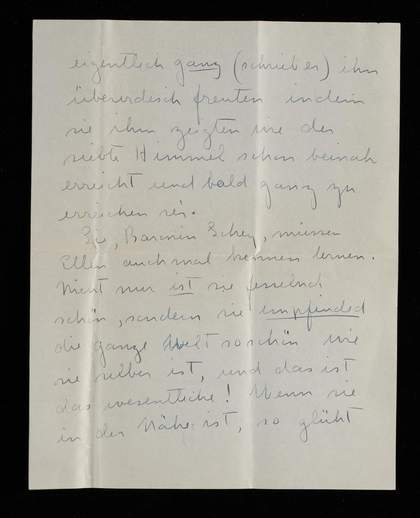 eigentlich ganz (schrieb er) ihn
überirdisch freuten indem
sie ihm zeigten wie der
siebte Himmel schon beinah
erreicht und bald ganz zu
erreichen sei.
Sie, Baronin Schey, müssen
Ellen auch mal kennen lernen.
Nicht nur ist sie fesselnd
schön, sondern sie empfindet
die ganze Welt so schön wie
sie selber ist, und das ist
das wesentliche! Wenn sie
in der Nähe ist, so glüht